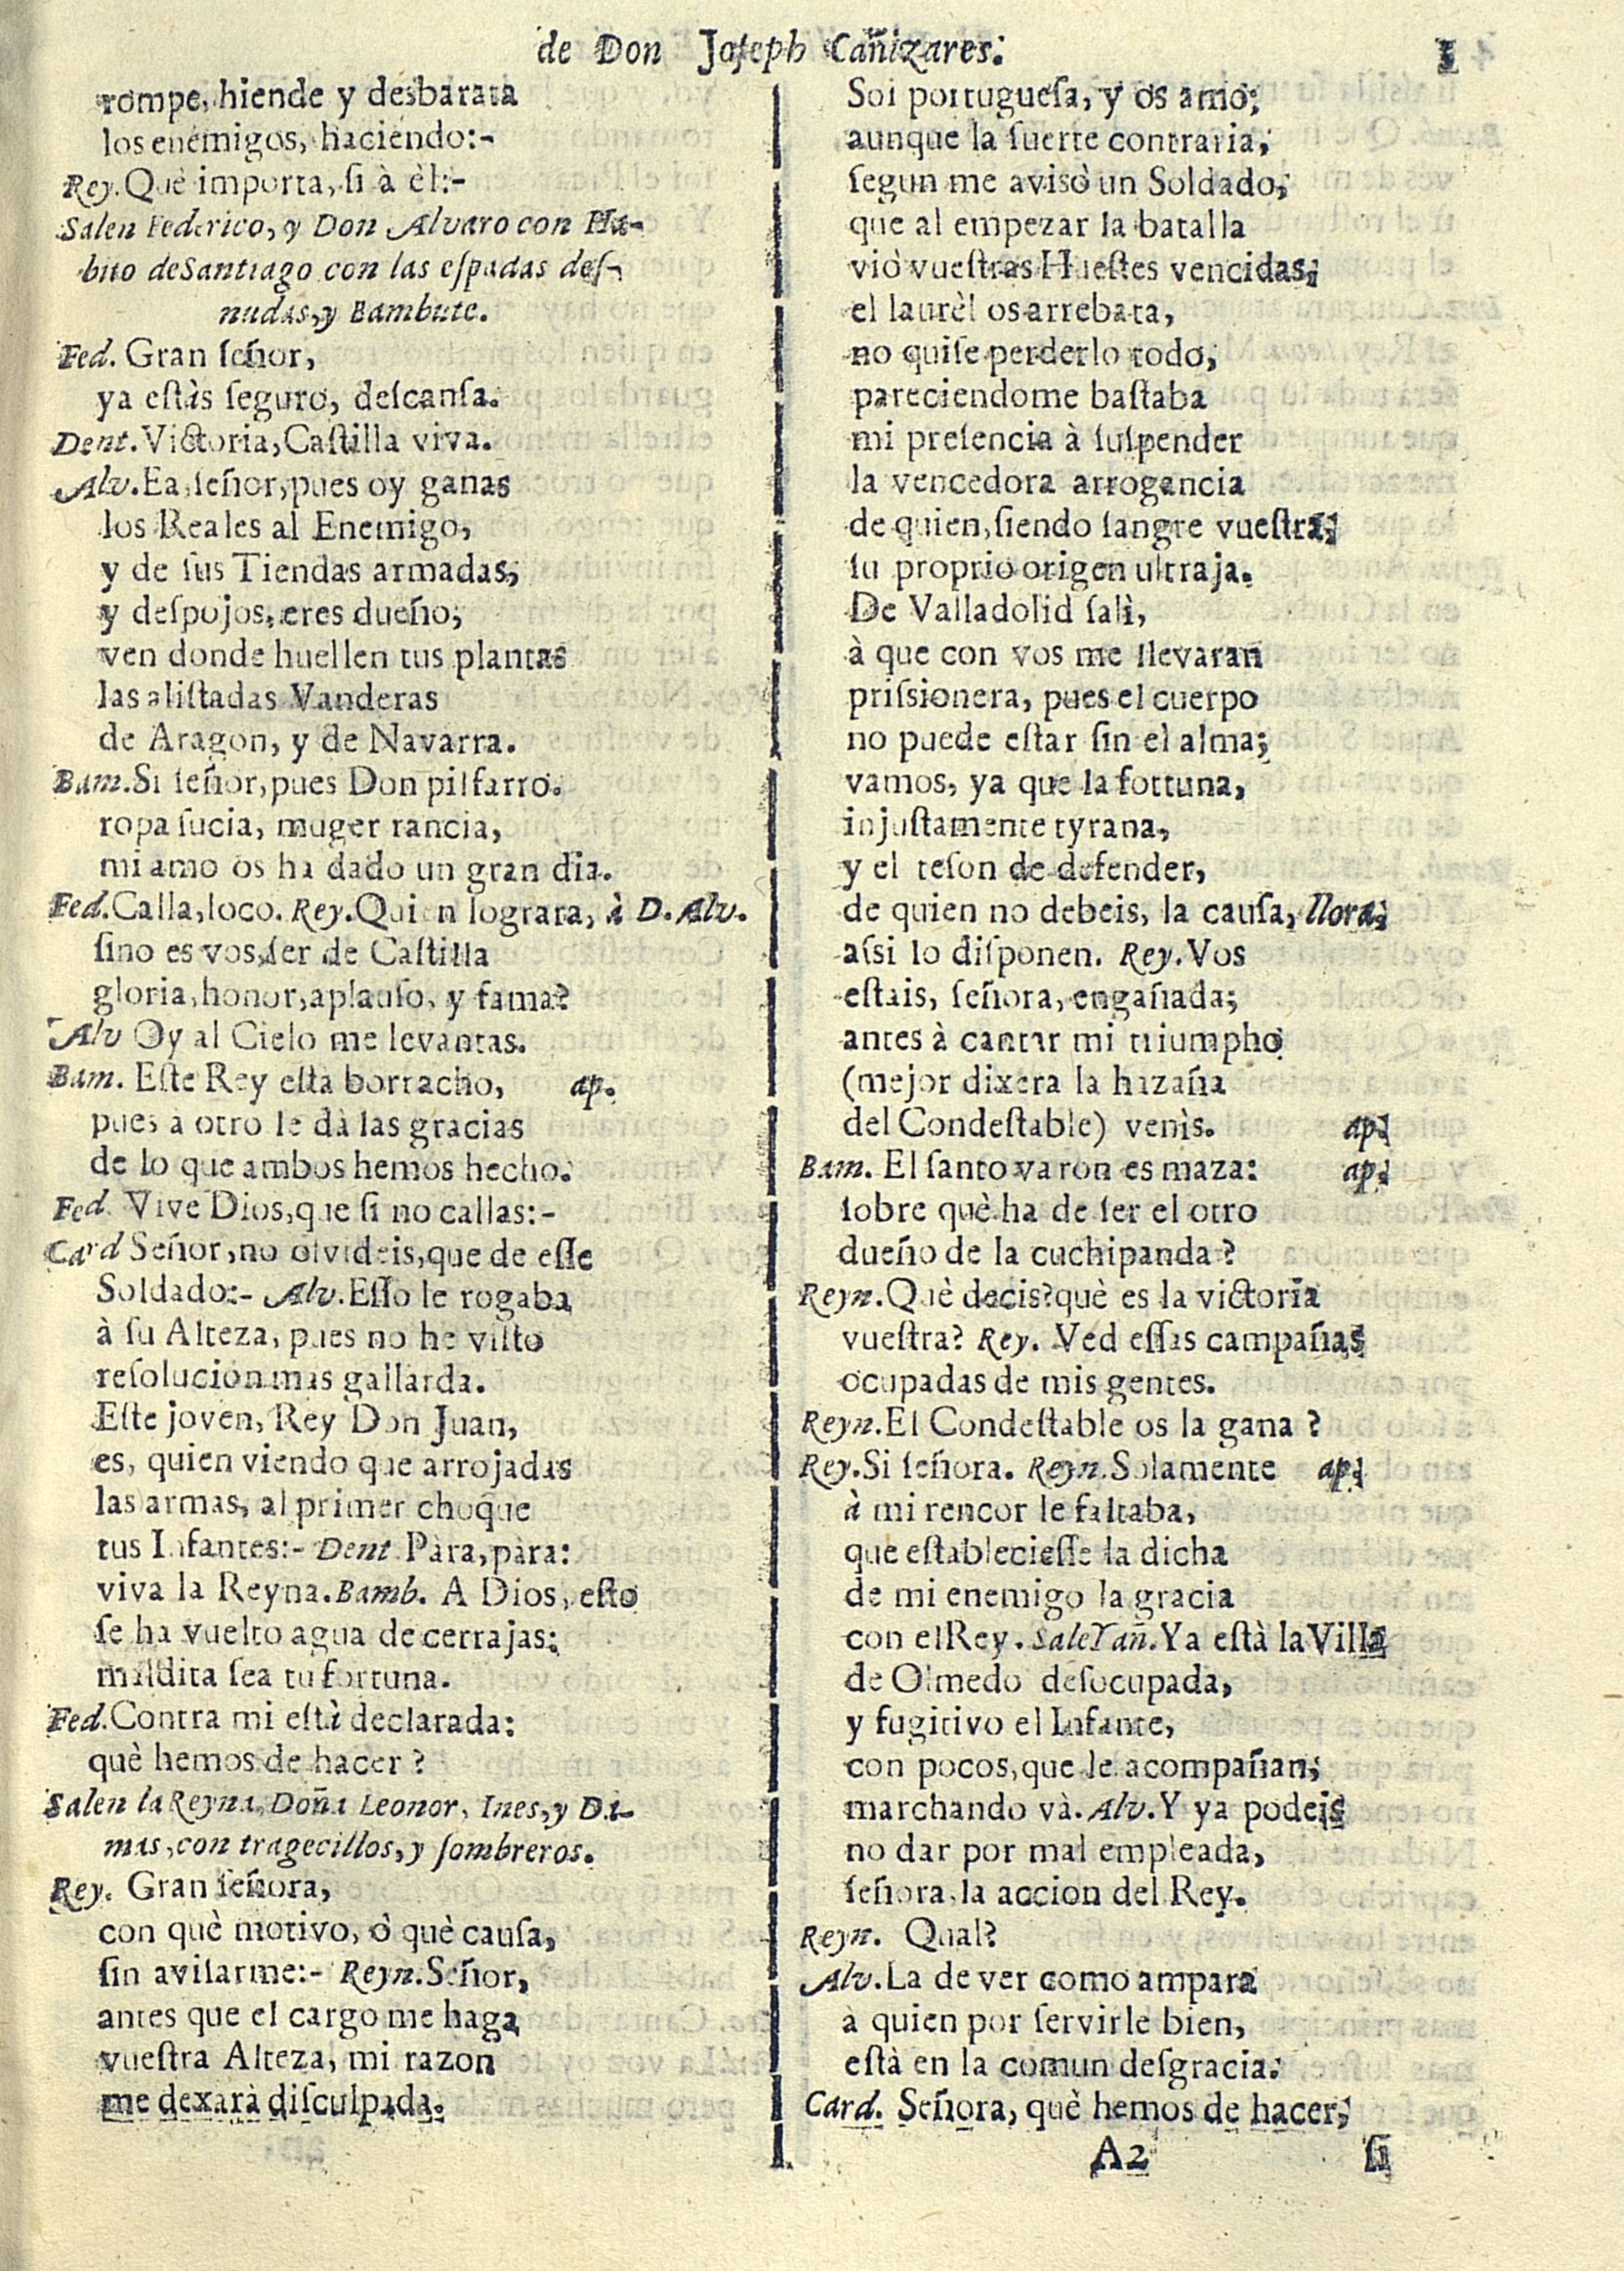 de Don Joſeph Cañizares.
rompe, hiende y desbarata
los enemigos, haciendo:-
Rey. Què importa, ſi à èl:-
Salen Federico, y Don Alvaro con Ha-
bito de Santiago con las eſpadas deſ-
nudas, y Bambute.
Fed. Gran ſeñor,
ya eſtàs ſeguro, deſcanſa.
Dent. Victoria, Caſtilla viva.
Alv. Ea, ſeñor, pues oy ganas
los Reales al Enemigo,
y de ſus Tiendas armadas,
y deſpojos, eres dueño,
ven donde huellen tus plantas
las aliſtadas Vanderas
de Aragon, y de Navarra.
Bam. Si ſeñor, pues Don pilfarro.
ropa ſucia, muger rancia,
mi amo os ha dado un gran dia.
Fed. Calla, loco. Rey. Quien lograra, à D. Alv.
ſino es vos, ſer de Caſtilla
gloria, honor, aplauſo, y fama?
Alv Oy al Cielo me levantas.
Bam. Eſte Rey eſta borracho, ap.
pues a otro le dà las gracias
de lo que ambos hemos hecho.
Fed. Vive Dios, que ſi no callas:-
Card Señor, no olvideis, que de eſſe
Soldado:- Alv. Eſſo le rogaba
à ſu Alteza, pues no he viſto
reſolucion mas gallarda.
Eſte joven, Rey Don Juan,
es, quien viendo que arrojadas
las armas, al primer choque
tus Infantes:- Dent Pàra, pàra:
viva la Reyna. Bamb. A Dios, eſto
ſe ha vuelto agua de cerrajas:
maldita ſea tu fortuna.
Fed. Contra mi eſtà declarada:
què hemos de hacer?
Salen la Reyna, Doña Leonor, Ines, y Da-
mas, con tragecillos, y ſombreros.
Rey. Gran ſeñora,
con què motivo, ò què cauſa,
ſin aviſarme:- Reyn. Señor,
antes que el cargo me haga
vueſtra Alteza, mi razon
me dexarà diſculpada.
Soi portugueſa, y os amo;
aunque la ſuerte contraria,
ſegun me avisò un Soldado,
que al empezar la batalla
viò vueſtras Hueſtes vencidas,
el laurèl os arrebata,
no quiſe perderlo todo,
pareciendome baſtaba
mi preſencia à ſuſpender
la vencedora arrogancia
de quien, ſiendo ſangre vueſtra,
ſu proprio origen ultraja.
De Valladolid ſalì,
à que con vos me llevaran
priſsionera, pues el cuerpo
no puede eſtar ſin el alma;
vamos, ya que la fortuna,
injuſtamente tyrana,
y el teſon de defender,
de quien no debeis, la cauſa, llora.
aſsi lo diſponen. Rey. Vos
eſtais, ſeñora, engañada;
antes à cantar mi triumpho
(mejor dixera la hazaña
del Condeſtable) venìs. ap.
Bam. El ſanto varon es maza: ap.
ſobre què ha de ſer el otro
dueño de la cuchipanda?
Reyn. Què decis? què es la victoria
vueſtra? Rey. Ved eſſas campañas
ocupadas de mis gentes.
Reyn. El Condeſtable os la gana?
Rey. Si ſeñora. Reyn. Solamente ap.
à mi rencor le faltaba,
que eſtablecieſſe la dicha
de mi enemigo la gracia
con el Rey. Sale Yañ. Ya eſtà la Villa
de Olmedo deſocupada,
y fugitivo el Infante,
con pocos, que le acompañan;
marchando và. Alv. Y ya podeis
no dar por mal empleada,
ſeñora, la accion del Rey.
Reyn. Qual?
Alv. La de ver como ampara
a quien por ſervirle bien,
eſtà en la comun deſgracia.
Card. Señora, què hemos de hacer,
A2 ſi